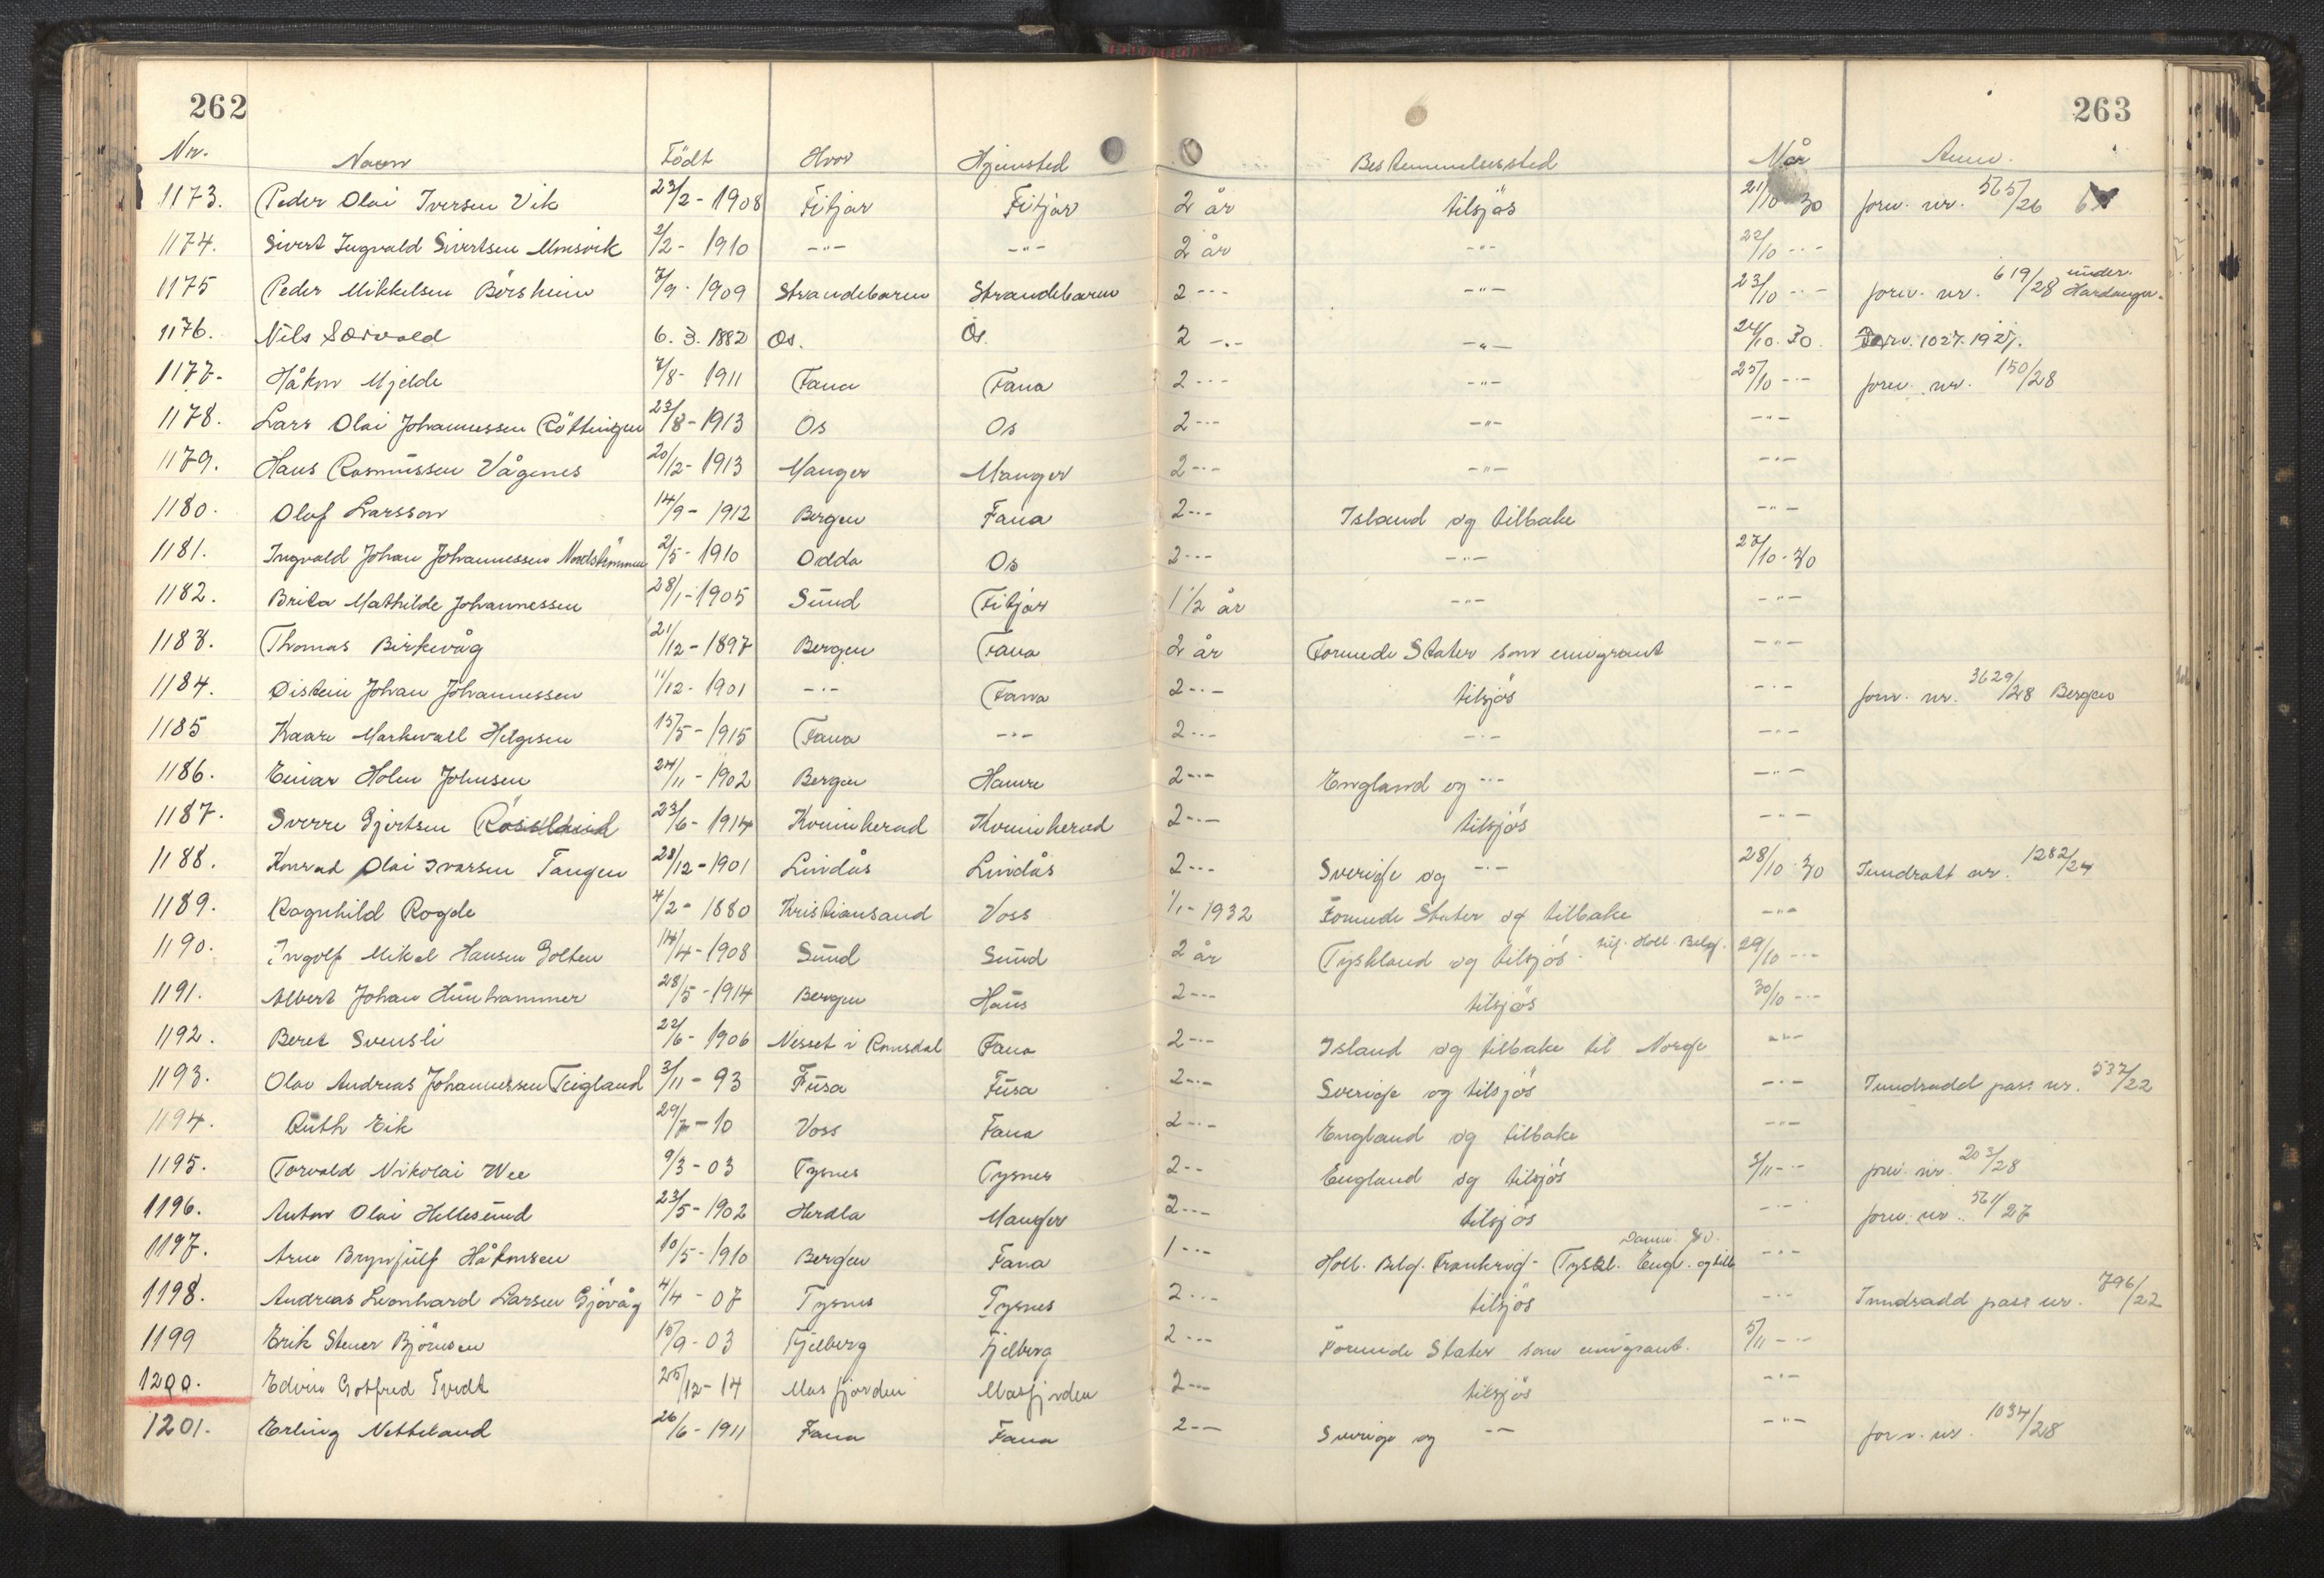 262
263
Nr. Navn Födt Hvor Hjemsted Bestemmelsessted Når Anm.
1173. Peder Olai Iversen Vik 23/2 - 1908 Fitjar Fitjar 2 år tilsjös 21/10 30 forv. nr. 565/26
1174. Sivert Ingvald Sivertsen 2/2 - 1910 -"- -"- 2 år -"- 22/10 -"-
1175 Peder Mikkelsen Börsheim 7/9 - 1909 Strandebarm Strandebarm 2 -"- -"- 23/10 -"- forv. nr. 619/28 under Hardanger.
1176. Nils Sörvold 6. 3. 1882 Os. Os. 2 -"- -"- 24/10. 30. Forv. 1027. 1927.
1177. Håkon Mjelde 7/8 - 1911 Fana Fana 2 -"- -"- 25/10 -"- forv. nr. 150/28
1178. Lars Olai Johannessen Röttingen 23/8 - 1913 Os Os 2 -"- -"- -"-
1179. Hans Rasmussen Vågenes 20/12 - 1913 Manger Manger 2 -"- -"- -"-
1180. Olof Larsson 14/9 - 1912 Bergen Fana 2 -"- Island og tilbake -"-
1181. Ingvald Johan Johannessen 2/5 - 1910 Odda Os 2 -"- -"- 27/10 - 30
1182. Brita Mathilde Johannessen 28/1 - 1905 Sund Fitjar 1 1/2 år -"- -"-
1183. Thomas Birkevåg 21/12 - 1897 Bergen Fana 2 år Forende Stater som emigrant -"-
1184. Øistein Johan Johannessen 11/12 - 1901 -"- Fana 2 -"- tilsjös -"- forv. nr. 3629/28 Bergen
1185 Kaare Markvall Helgesen 15/5 - 1915 Fana -"- 2 -"- -"- -"-
1186. Einar Holm Johnsen 24/11 - 1902 Bergen Hamre 2 -"- England og -"- -"-
1187. Sverre Gjertsen 23/6 - 1914 Kvinnherad Kvinnherad 2 -"- tilsjös -"-
1188. Konrad Olai Ivarsen Tangen 28/12 - 1901 Lindås Lindås 2 -"- Sverige og -"- 28/10 30 Inndratt nr. 1282/24
1189. Ragnhild Rogde 4/2 - 1880 Kristiansand Voss 1/1 - 1932 Forende Stater og tilbake -"-
1190. Ingolf Mikal Hansen Golten 14/4 - 1908 Sund Sund 2 år Tyskland og tilsjös. Holl. Belg. 29/10 -"-
1191. Albert Johan Hunhammer 28/5 - 1914 Bergen Haus 2 -"- tilsjös 30/10 -"-
1192. Beret Svensli 22/6 - 1906 Nesset i Romsdal Fana 2 -"- Island og tilbake til Norge -"-
1193. Olav Andreas Johannessen Teigland 3/11 - 93 Fusa Fusa 2 -"- Sverige og tilsjös -"- Inndradd pass nr. 532/22
1194. Ruth Eik 29/7 - 10 Voss Fana 2 -"- England og tilbake -"-
1195. Torvald Nikolai Wee 9/3 - 03 Tysnes Tysnes 2 -"- England og tilsjös 3/11 -"- forv. nr. 203/28
1196. Anton Olai Hellesund 23/5 - 1902 Herdla Manger 2 -"- tilsjös -"- forv. nr. 561/27
1197. Arne Brynjulf Håkonsen 10/5 - 1910 Bergen Fana 1 -"- Holl. Belg. Frankrig - Tyskl. Engl. og tilb -"-
1198. Andreas Leonhard Larsen Gjövåg 4/4 - 07 Tysnes Tysnes 2 -"- tilsjös -"- Inndradd pass nr. 796/22
1199 Erik Stener Björnsen 15/9 - 03 Fjelberg Fjelberg 2 -"- Forende Stater som emigrant. 5/11 -"-
1200. Edvin Gotfred Tvedt 25/12 - 14 Masfjorden Masfjorden 2 -"- tilsjös -"-
1201. Erling Netteland 26/6 - 1911 Fana Fana 2 -"- Sverige og -"- -"- forv. nr. 1034/28